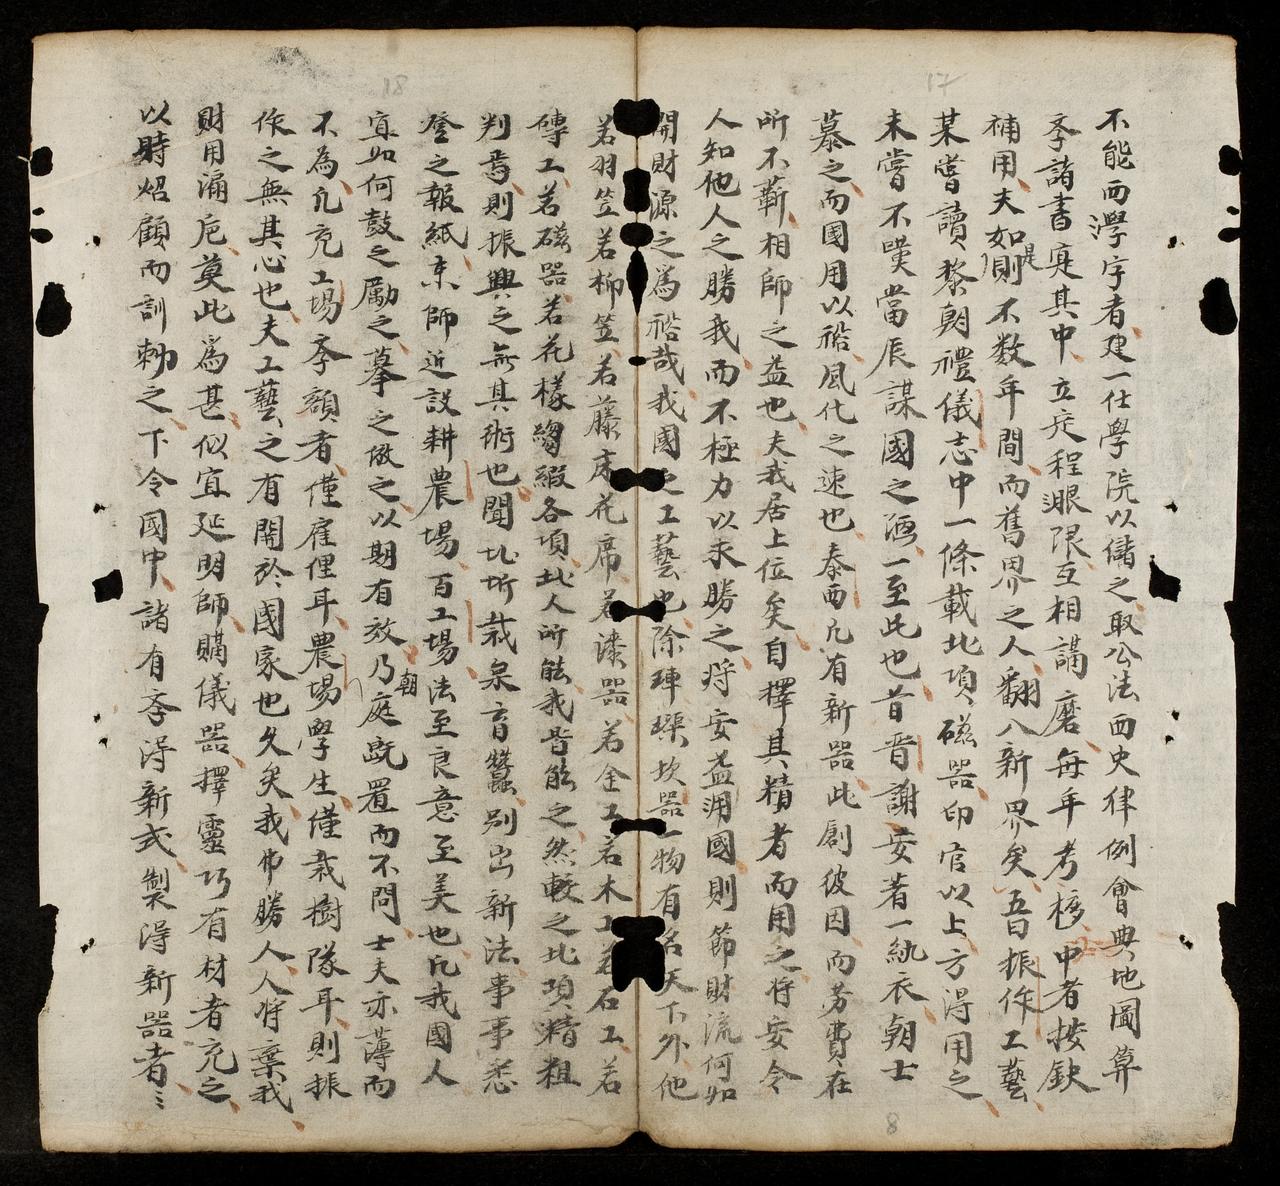 17
不能而學字者建一仕學院以儲之取公法西史律例會典地圖算
孝諸書寔其中立定程限互相講磨每年考核中者按缺
補用夫如是則不数年間而舊界之人翻入新界矣吾振作工藝
某嘗讀黎朝禮儀志中一條載此項磁器印官以上方得用之
未嘗不嘆當辰謀國之酒一至此也昔晋謝安着一紈衣朝士
慕之而國用以裕風化之速也泰西凡有新器此創彼因而勞費在
所不靳相師之益也夫我居上位矣自擇其精者而用之将安令
人知他人之勝我而不極力以求勝之将安益淍國則節財流何如
開財源之為裕哉我國之工藝也除硨磲坎器一物有名天下外他
若羽笠若柳笠若藤床花席若漆器若金工若木工若石工若
磚工若磁器若花樣縐緞各項此人所能我皆能之然較之此項精粗
判焉則振興之無其術也聞北圻栽桑育蠶別出新法事事悉
登之報紙京師近設耕農場百工場法至良意至美也凡我國人
宜如何鼓之勵之摹之倣之以期有效乃朝庭既置而不問士夫亦薄而
不為凢充工場孝額者僅雇俚耳農場學生僅栽樹隊耳則振
作之無其心也夫工藝之有關於國家也久矣我弗勝人人将棄我
財用漏卮莫此為甚似宜延明師購儀器擇靈巧有材者充之
以時炤顧而訓勅之下令國中諸有孝得新式製得新器者〻
18
8